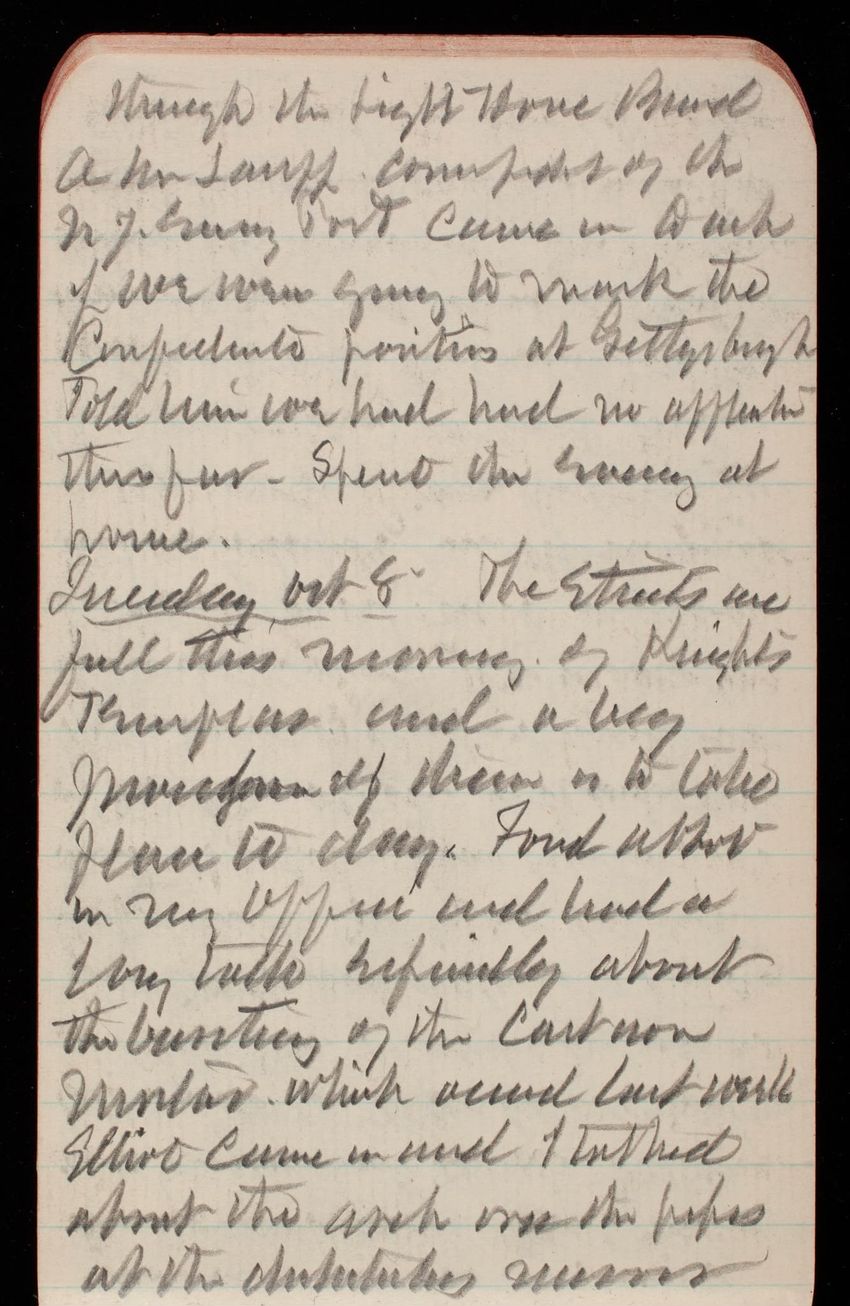 through the Light House Board
A Mr Lauff. of the
N Y. Evening Post Came in to ask
if we were going to mark the
Confederate positions at Gettysburgh
Told him we had had no
thus far - Spent the evening at
home.
Tuesday Oct 8 The Streets are
full this morning of Knights
Templar. and a big
procession of them is to take
place to day. Found Abbot
in my Office and had a
long talk especially about
the bursting of the Cast iron
Mortar. which occurred last week
Elliot Came in and I talked
about the arch over the pipes
at the distributing reservoir